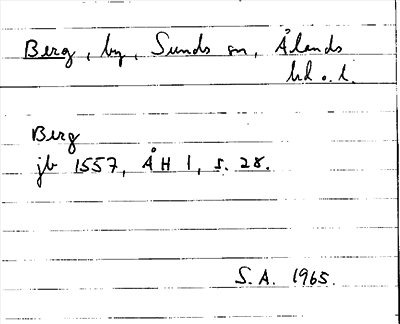 Berg, by, Sunds sn, Ålands
hd o. l.
Berg
jb 1557, ÅH 1, s. 28.
S.A. 1965.